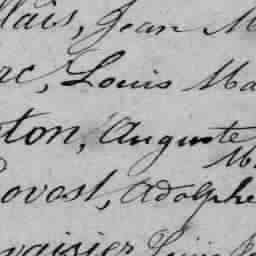 llais, Jean M
rc, Louis Ma
ton, Auguste
M
ovost, Adolphe
vaisier